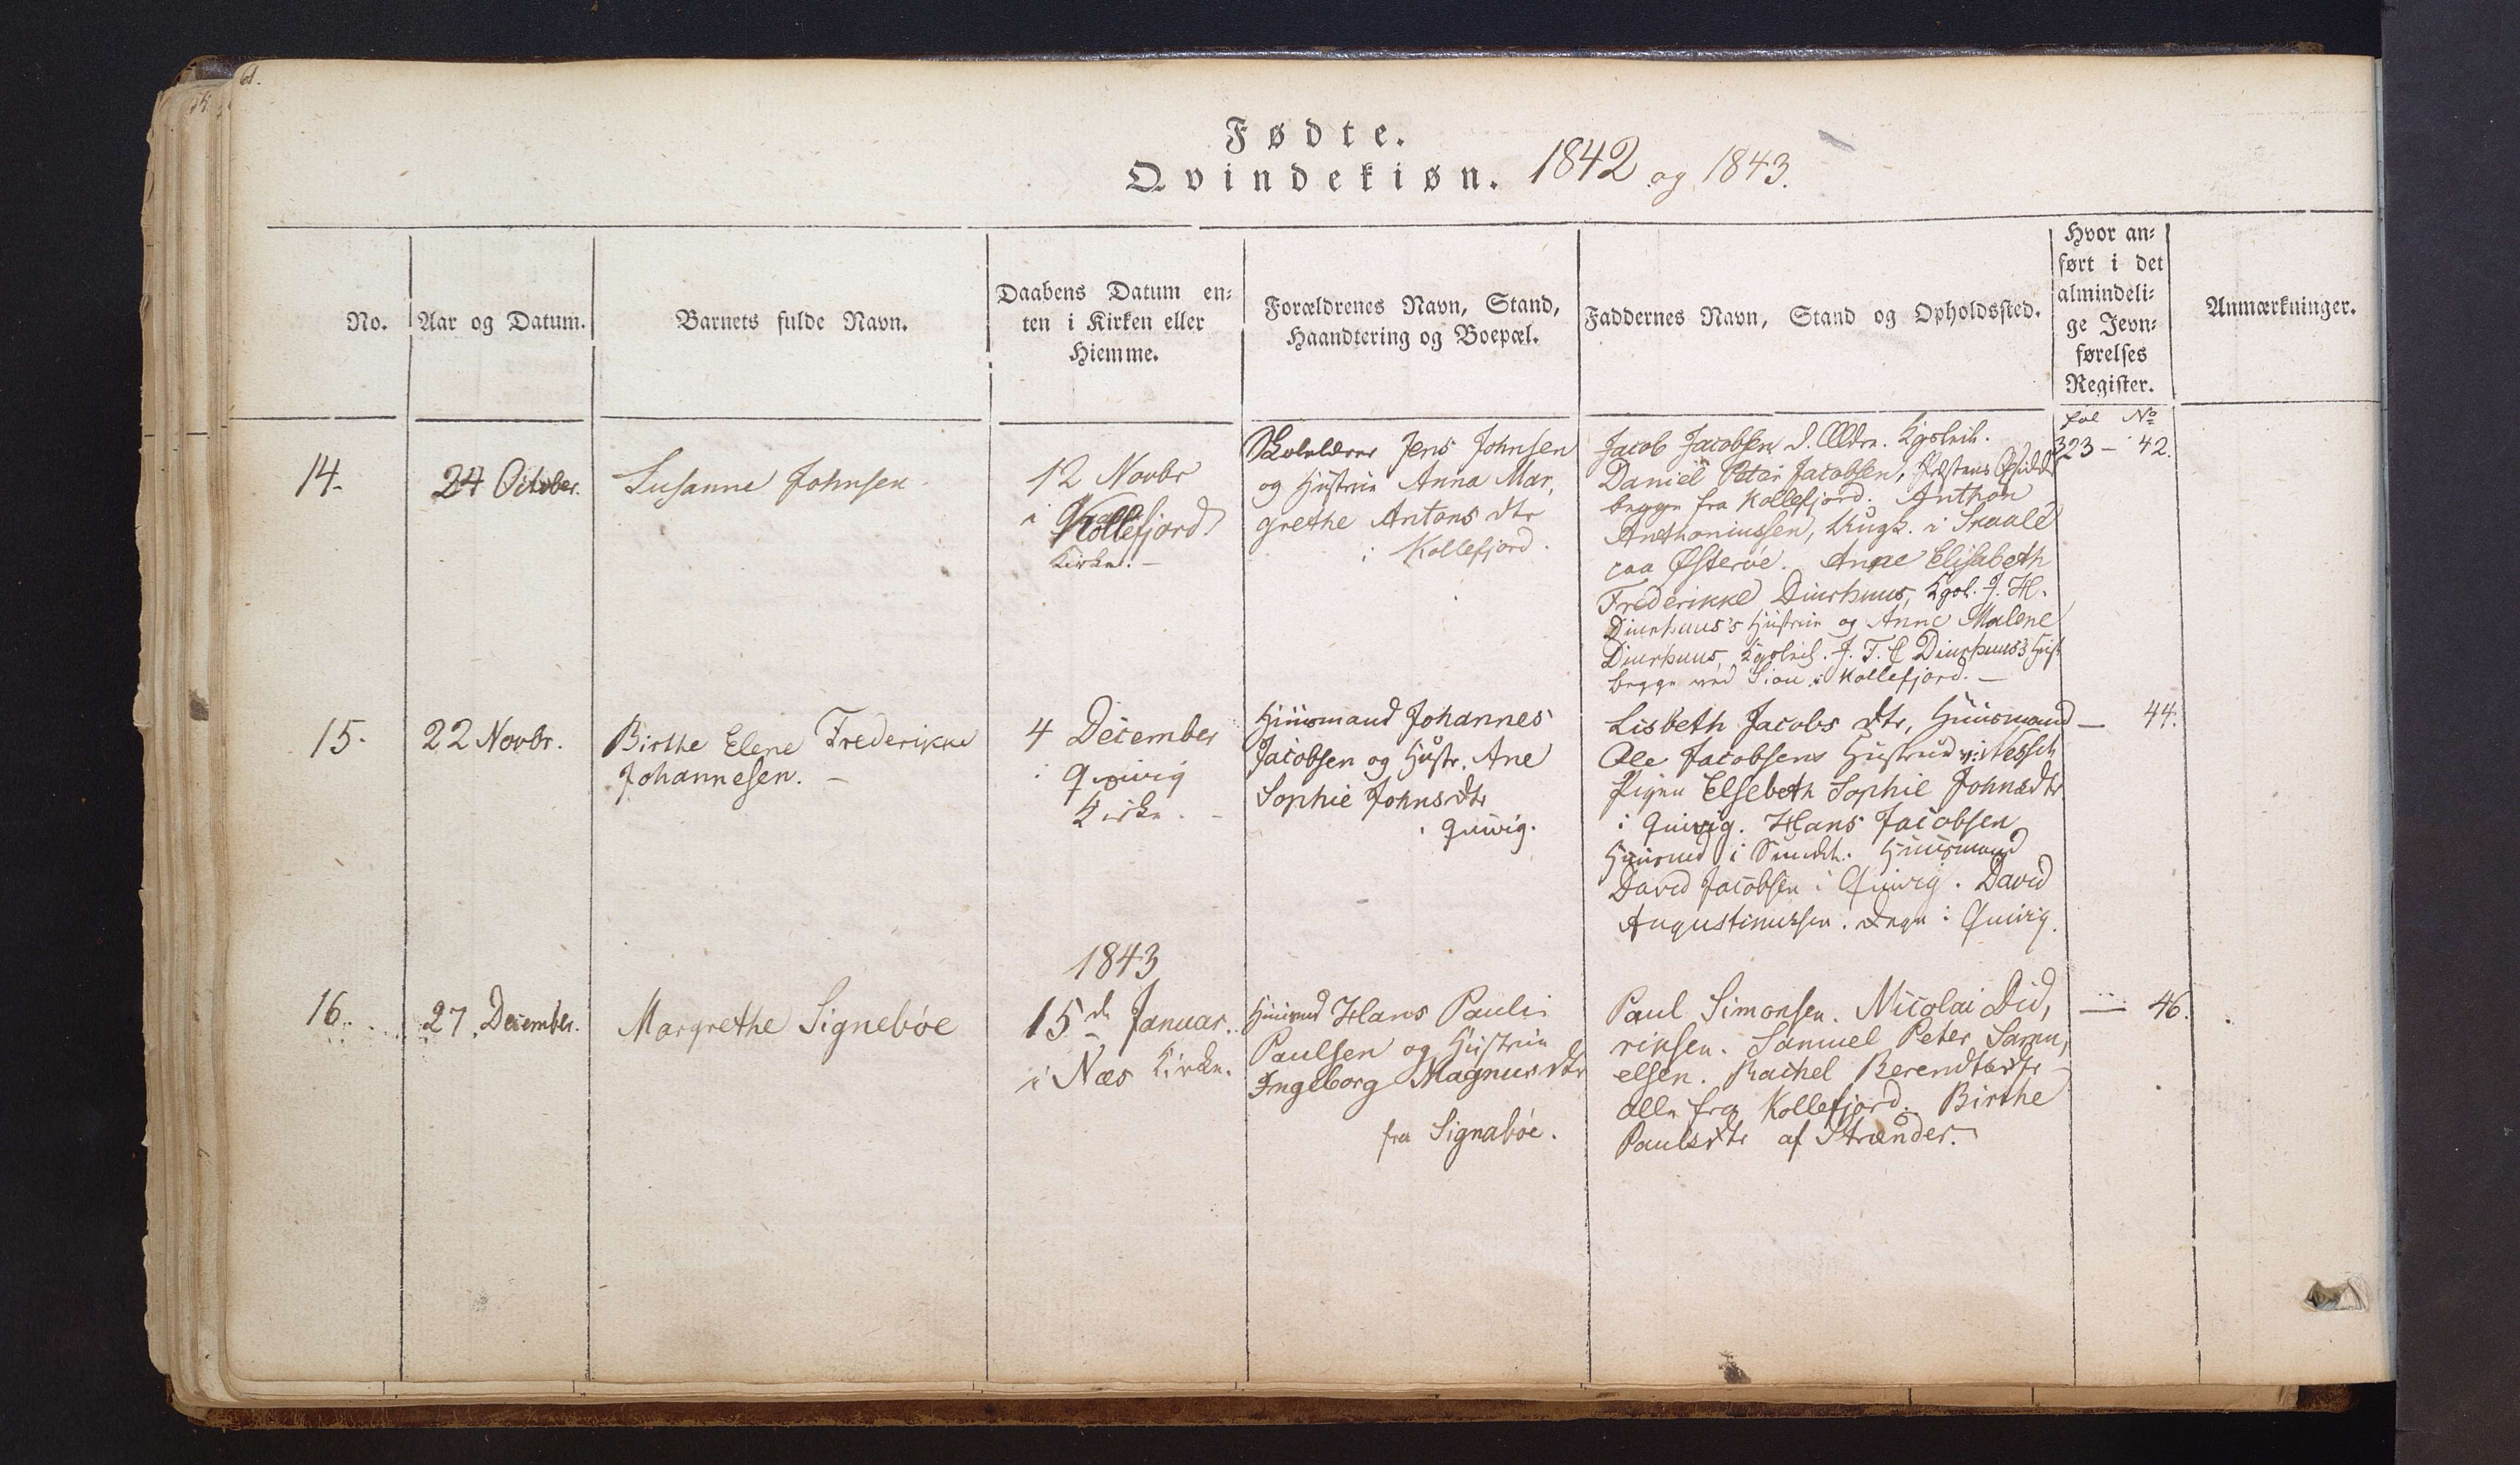 61.
Fødte.
Qvindekiøn. 1842 og 1843.
No.
Aar og Datum.
Barnets fulde Navn.
Daabens Datum en=
ten i Kirken eller
Hiemme.
Forældrenes Navn, Stand,
Haandtering og Boepæl.
Faddernes Navn, Stand og Opholdssted.
Hvor an=
ført i det
almindeli=
ge Jevn=
førelses
Register.
Anmærkninger.
fol No
14.
24 October.
Susanne Johnsen
12 Novbr
i Kollefjord
Kirke. —
Skolelærer Jens Johnsen
og Hustrue Anna Mar,
grethe Antons dtr
i Kollefjord.
Jacob Jacobsen d. Ældre.
Daniel Peter Jacobsen,
begge fra Kollefjord. Anthon
Anthoniussen, i Skaale
paa Østerøe. Anne Elisabeth
Frederikke Diurhuus, J. H.
Diurhuus's Hustrue og Anne Malene
Diurhuus, J. F. Diurhuus's Hust
begge ved Sion i Kollefjord. —
323 — 42.
15.
22 Novbr.
Birthe Elene Frederikke
Johannesen. —
4 December
i Qvivig
Kirke. —
Huusmand Johannes
Jacobsen og Hustr. Ane
Sophie Johnsdtr
i Qvivig.
Lisbeth Jacobs dtr, Huusmand
Ole Jacobsens Hustrue
Pigen Elsebeth Sophie Johnsdtr
i Qvivig. Hans Jacobsen
Huusmd i Sundet. Huusmand
David Jacobsen i Qvivig. David
Augustinussen. Degn i Qvivig.
— 44.
16.
27. December.
Margrethe Signebøe
1843
15d Januar.
i Næs Kirke.
Huusmd Hans Pauli
Paulsen og Hustrue
Ingeborg Magnusdtr
fra Signabøe.
Paul Simonsen. Nicolai Did,
riksen. Samuel Peter Samu,
elsen. Rachel Berendtsdtr
alle fra Kollefjord. Birthe
Paulsdtr af Strænder.
— 46.